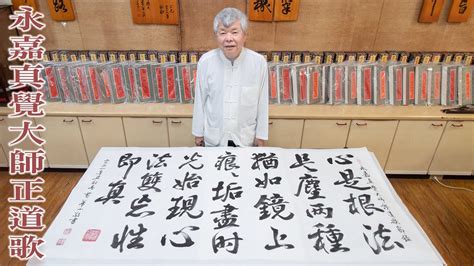 永嘉真覺大師正道歌
心是根法
是塵兩種
猶如鏡上
痕〻垢盡時
光始現心
法雙忘性
即真